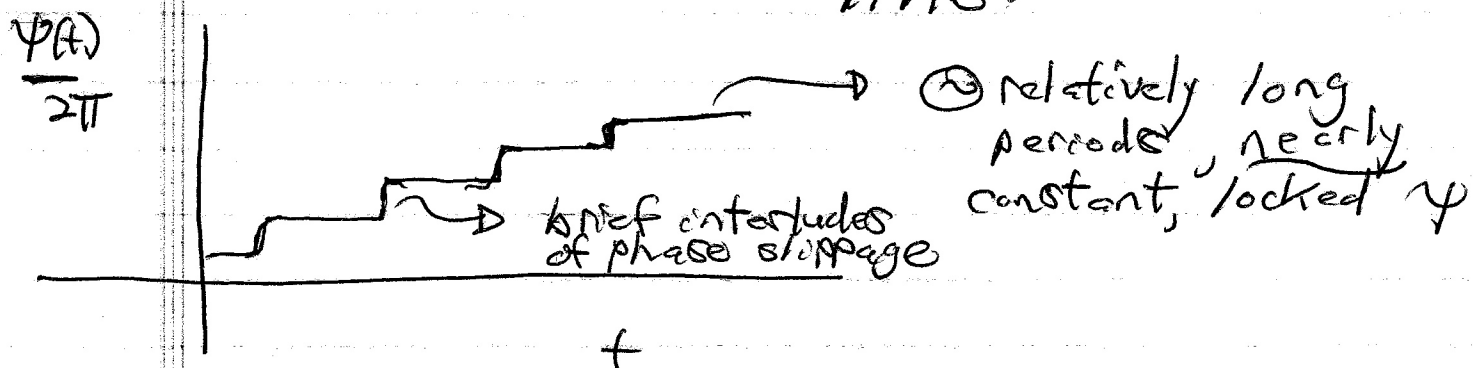 ψ(t)
2π
~ relatively long
periods, nearly
constant, locked ψ
brief interludes
of phase slippage
t